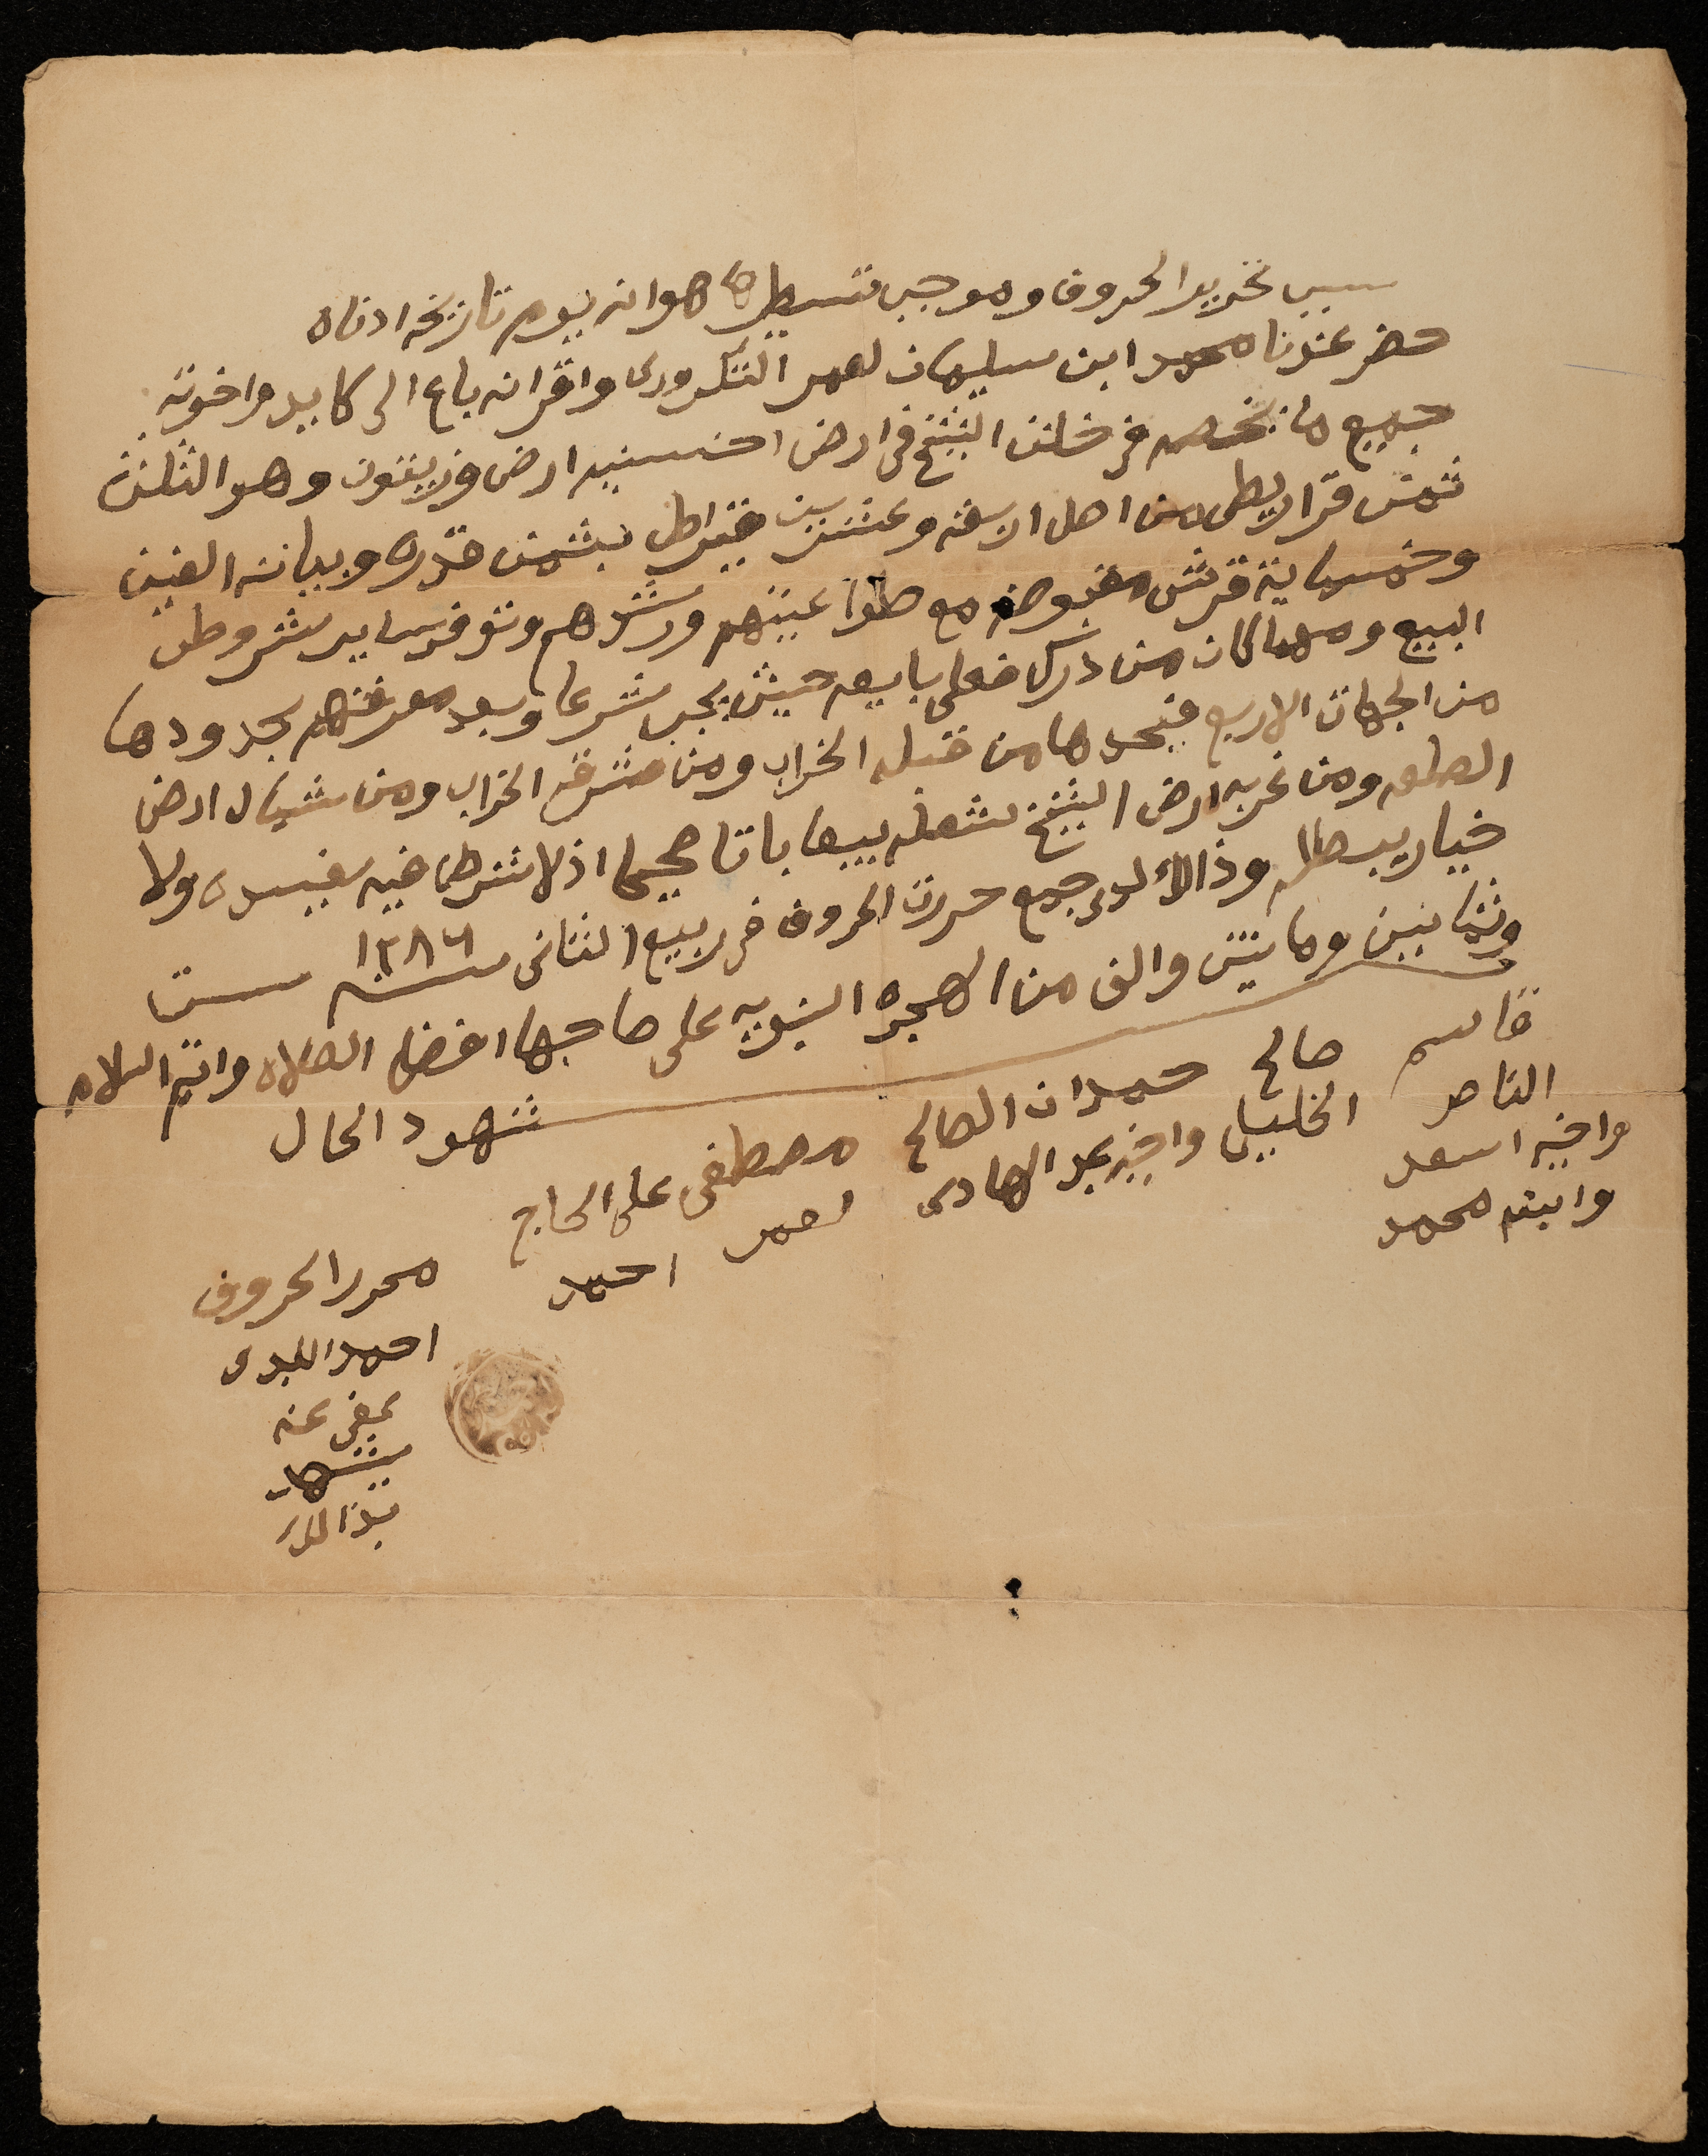 سبب تحرير الحروف وموجب تسطيرها هوانه يوم تاريخه ادناه
حضر عندنا محمد ابن سليمان لعمر التكرورى واقر انه باع الى كايد واخوته
جميع ما يخصه فى خلة الشيخ فى ارض ارض وزيتون وهو الثلث
ثمن قراريط من اصل اربعة وعشرين قيراط بثمن قدره وبيانه الفين
وخمسماية قرش مقبوضه مع طواعيتهم ورشدهم وتوفر ساير شروط
البيع ومهما كان من درك فعلى بايعه حيث يجب شرعا وبعد معرفتهم بحدودها
من الجهات الاربع فيحدها من قبله الخراب ومن شرقه الخراب ومن شمال ارض
ومن غربه ارض الشيخ بيعا باتا صحيحا اذ لا شرطا فيه يفسده ولا
خيار يبطله وذالك لدى جمع حررت الحروف فى ربيع الثانى سنة ١٢٨٦ ست
وثمانين ومايتين والف من الهجره النبويه على صاحبها افضل الصلاه واتم السلام
شهود الحال
قاسم الناصر واخيه اسعد وابنه محمد
صالح الخليل واخيه عبد الهادى
حمدان الصالح لعمر
مصطفى على الحاج احمد
محرر الحروف
احمد اللبدى
عفى عنه
شهد
بذالك